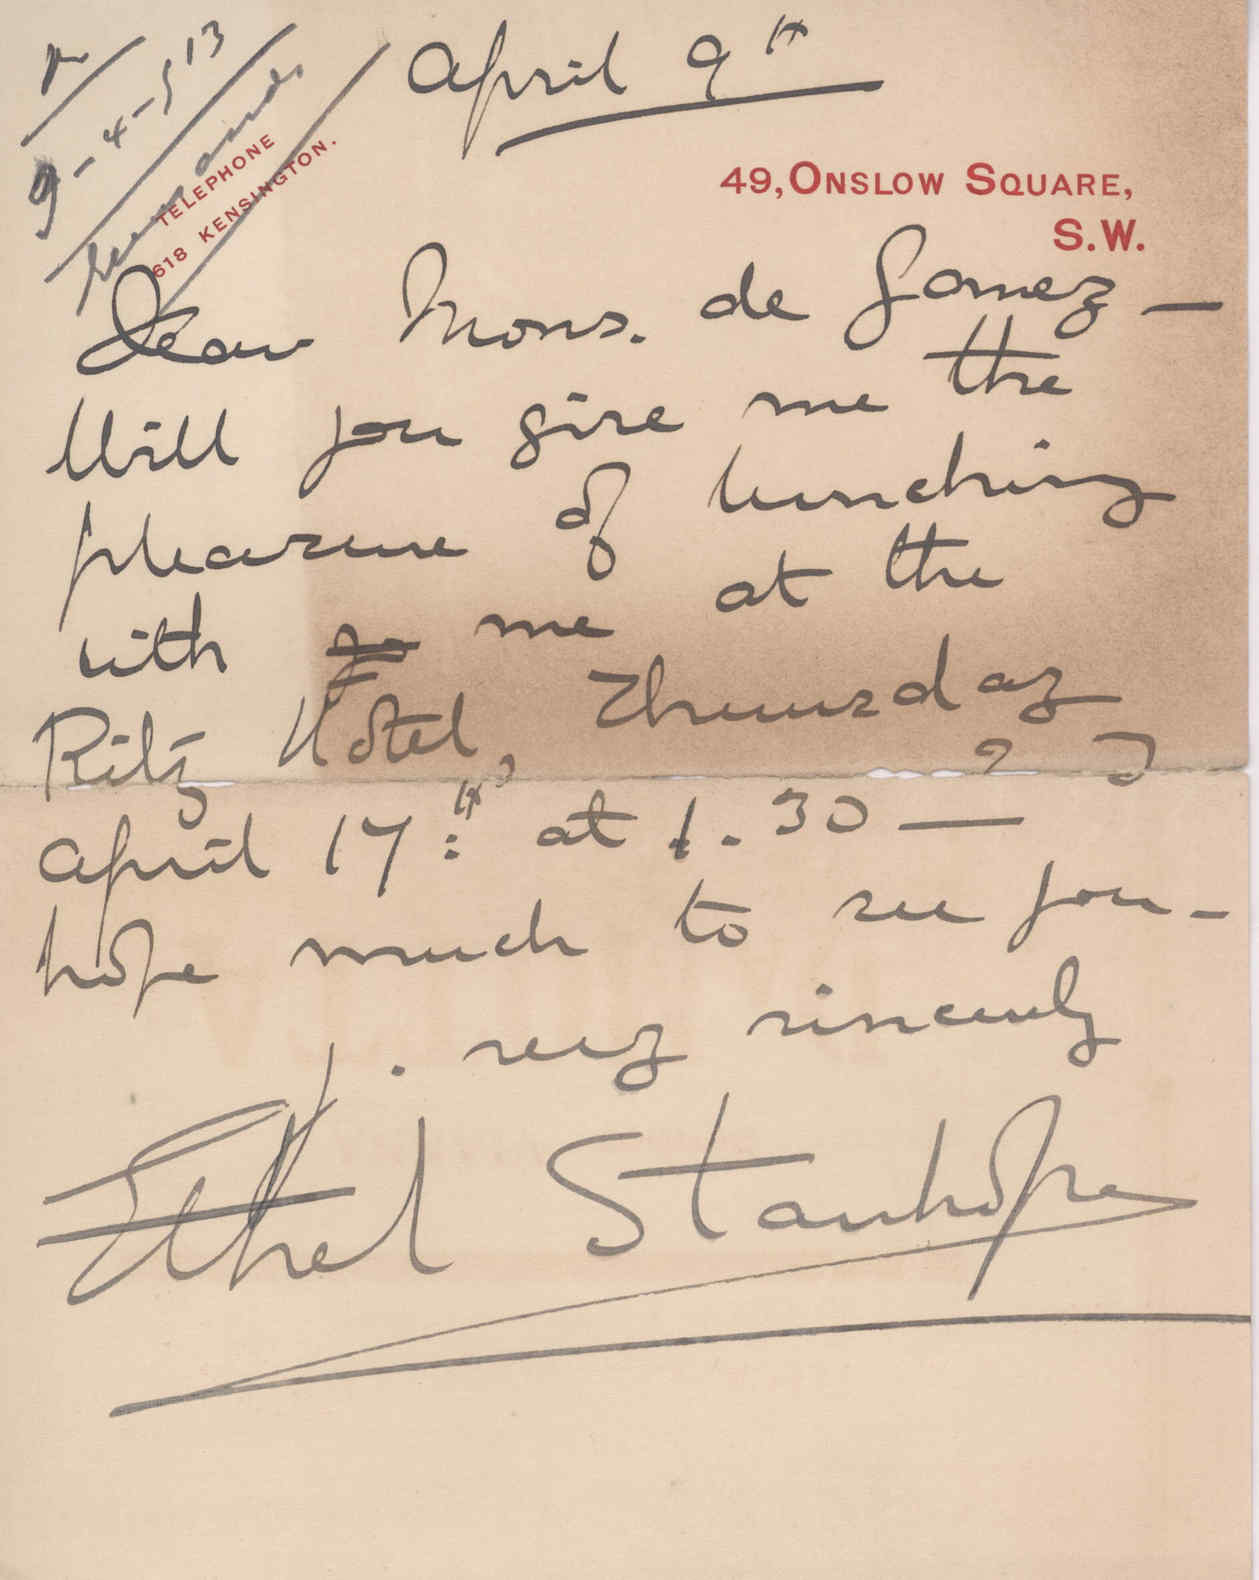 April 9th
9-4-913
TELEPHONE
618 KENSINGTON.
49, ONSLOW SQUARE,
S.W.
Dear Mons. de Gomez —
Will you give me the
pleasure of lunching
with me at the
Ritz Hotel, Thursday
April 17th at 1.30 — ? I
hope much to see you -
y. very sincerely
Ethel Stanhope